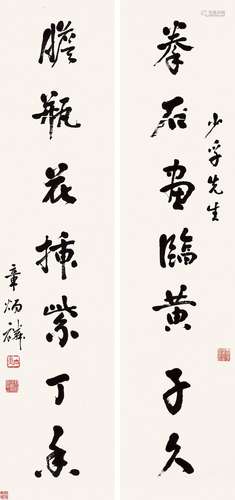 少孚先生
拳石画临黄子久
胆瓶花插紫丁香
章炳麟